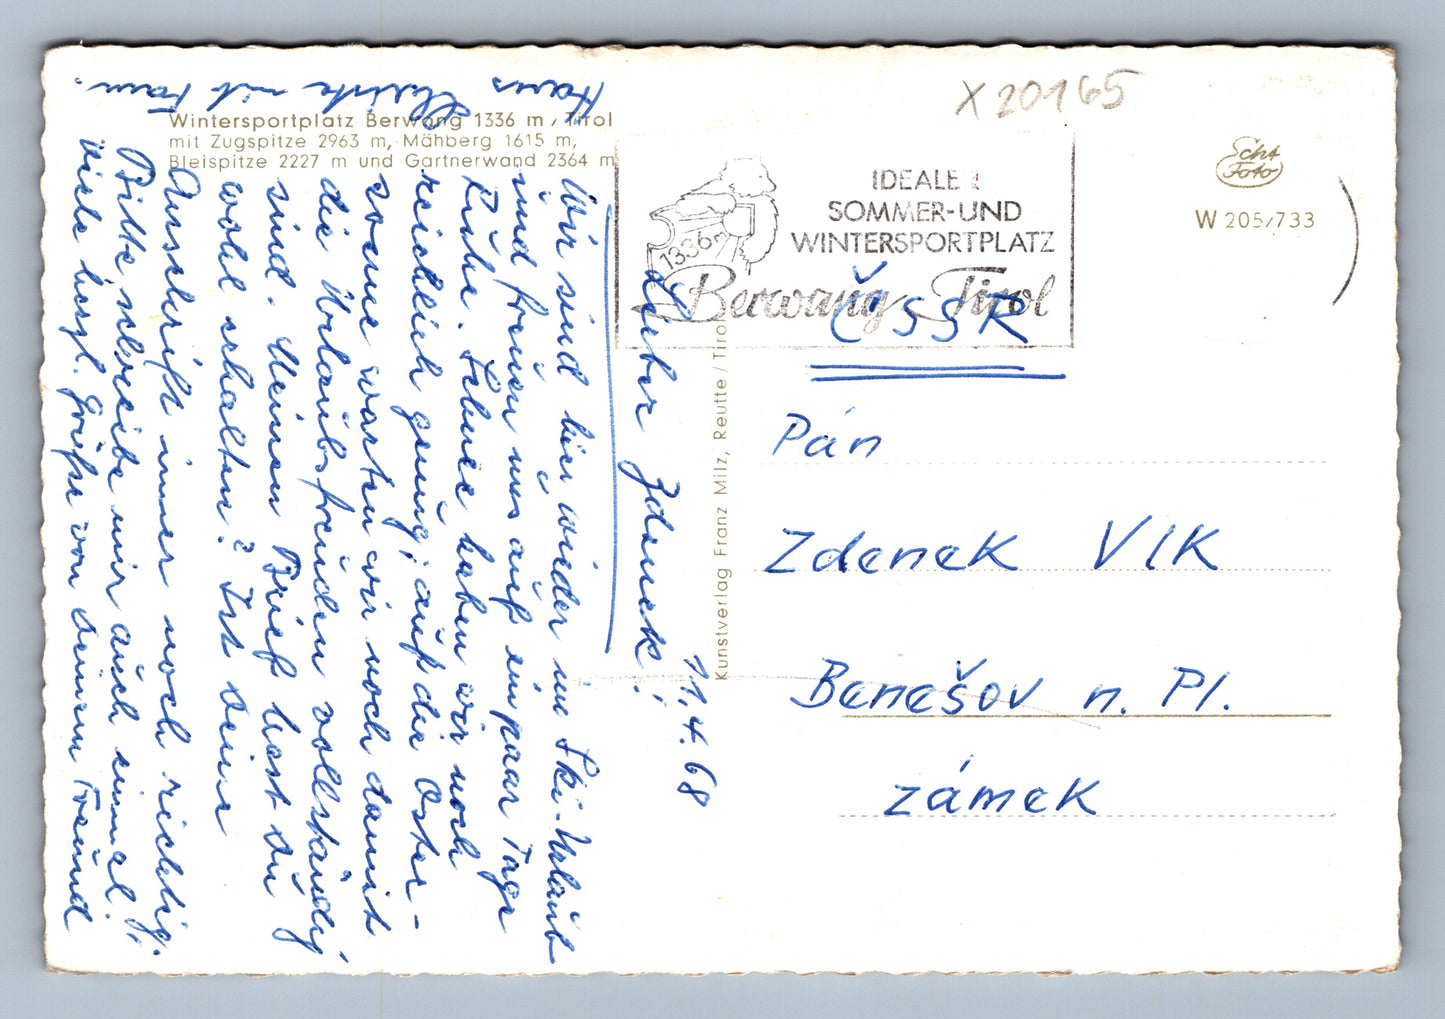 X 20165
Wintersportplatz Berwang 1336 m / Tirol
mit Zugspitze 2963 m, Mähberg 1615 m,
Bleispitze 2227 m und Gartnerwand 2364 m
1336 m
IDEALER
SOMMER-UND
WINTERSPORTPLATZ
Berwang Tirol
Echt
Foto
W 205/733
Kunstverlag Franz Milz, Reutte / Tirol
11.4.68
Lieber Zdenek!
Wir sind hier wieder im Ski-Urlaub
und freuen uns auf ein paar Tage
Ruhe. Schnee haben wir noch
reichlich genug; auf die Oster-
sonne warten wir noch damit
die Urlaubsfreuden vollständig
sind. Meinen Brief hast du
wohl erhalten? Ist deine
Anschrift immer noch richtig;
Bitte schreibe mir auch einmal.
viele herzl. Grüße von deinem Freund
Hans mit Fam.
ČSSR
Pán
Zdenek Vlk
Benešov n. Pl.
zámek